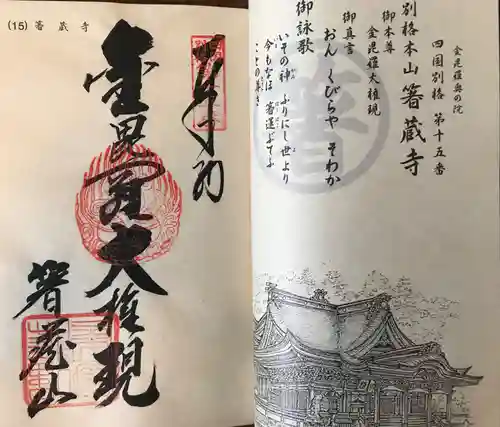 金毘羅奥の院
四国別格 第十五番
別格本山 箸蔵寺
御本尊
金毘羅大権現
御真言
おん くびらや そわか
御詠歌
いその神 ふりにし世より
今もなほ 箸運ぶてふ
ことの
箸
(15) 箸蔵寺
奉納
金毘羅大権現
箸蔵山